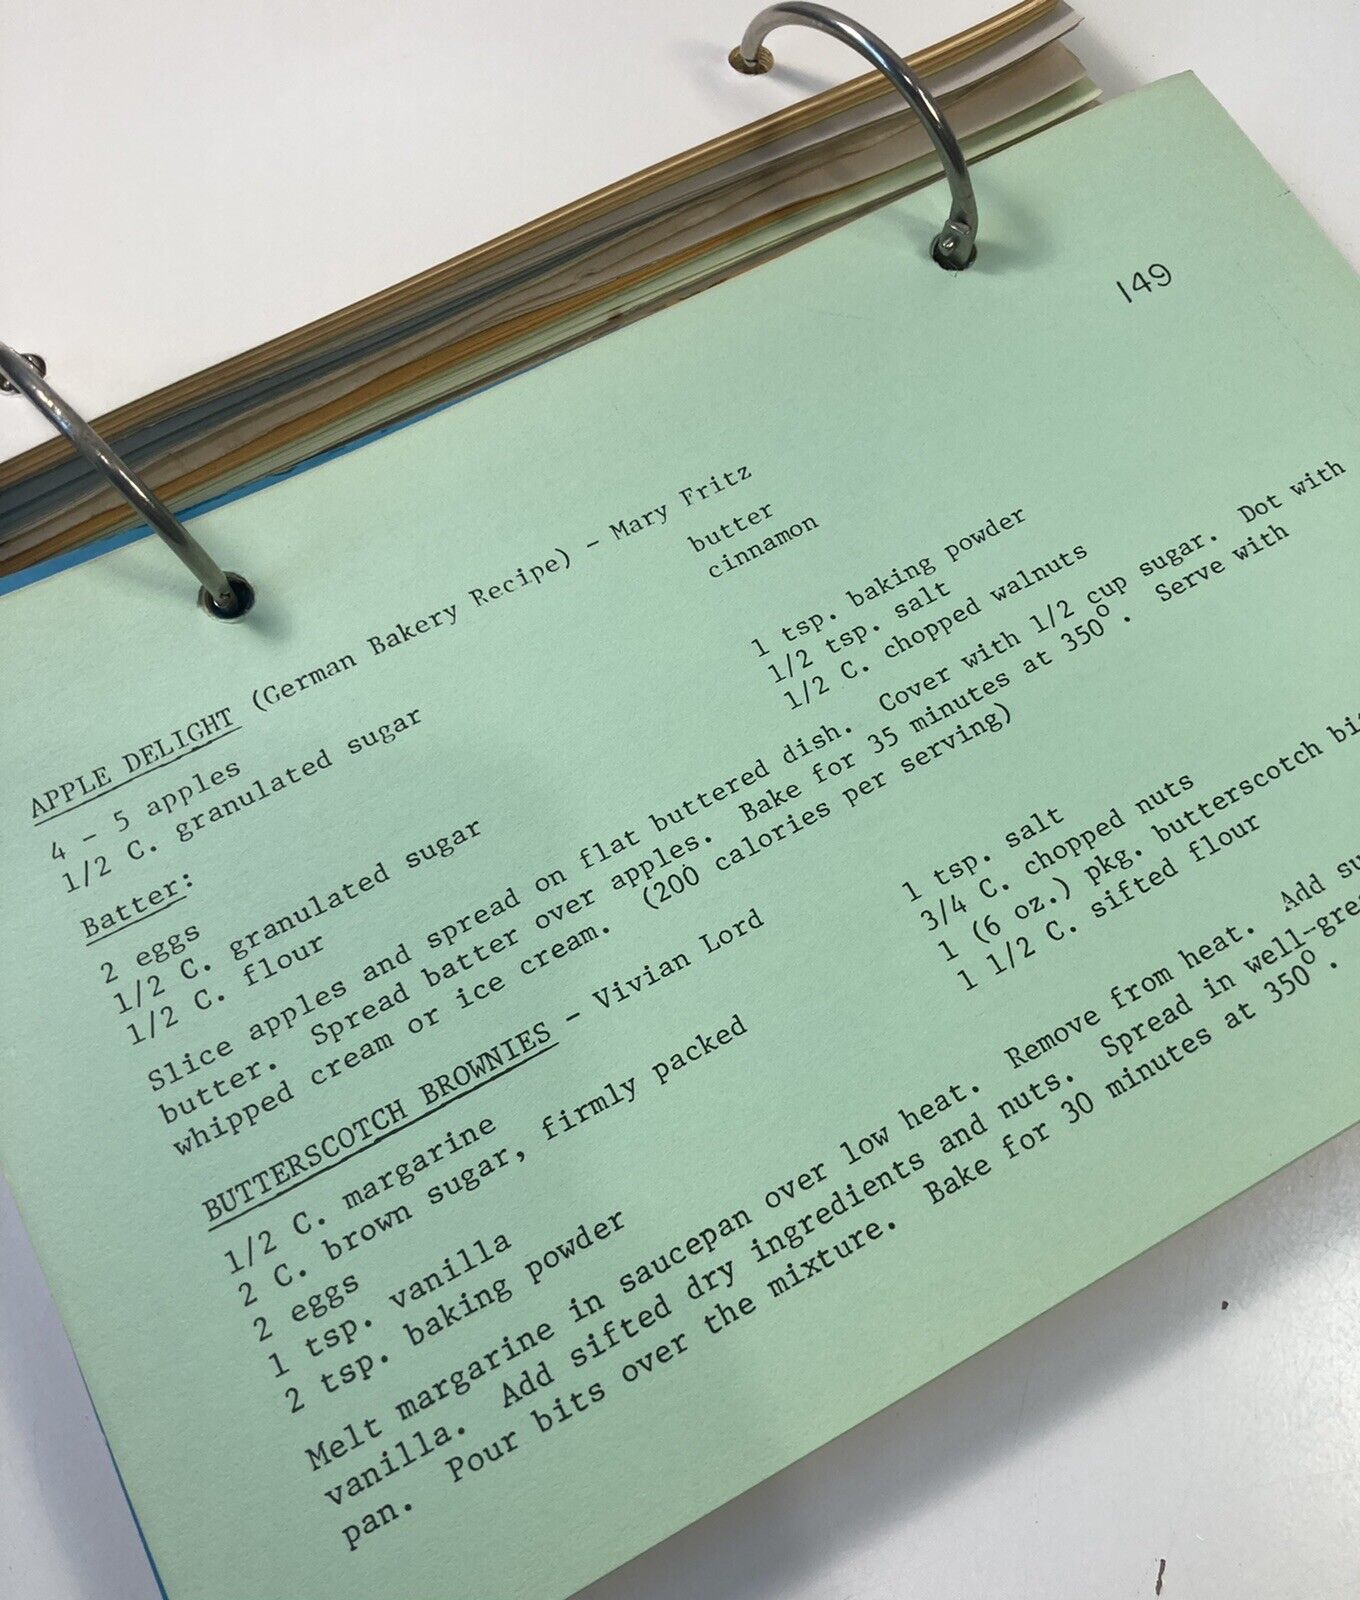 149
APPLE DELIGHT (German Bakery Recipe) - Mary Fritz
4 - 5 apples butter
1/2 C. granulated sugar cinnamon
Batter:
2 eggs 1 tsp. baking powder
1/2 C. granulated sugar 1/2 tsp. salt
1/2 C. flour 1/2 C. chopped walnuts
Slice apples and spread on flat buttered dish. Cover with 1/2 cup sugar. Dot with
butter. Spread batter over apples. Bake for 35 minutes at 350°. Serve with
whipped cream or ice cream. (200 calories per serving)
BUTTERSCOTCH BROWNIES - Vivian Lord
1/2 C. margarine 1 tsp. salt
2 C. brown sugar, firmly packed 3/4 C. chopped nuts
2 eggs 1 (6 oz.) pkg. butterscotch
1 tsp. vanilla 1 1/2 C. sifted flour
2 tsp. baking powder
Melt margarine in saucepan over low heat. Remove from heat. Add
vanilla. Add sifted dry ingredients and nuts. Spread in
pan. Pour bits over the mixture. Bake for 30 minutes at 350°.